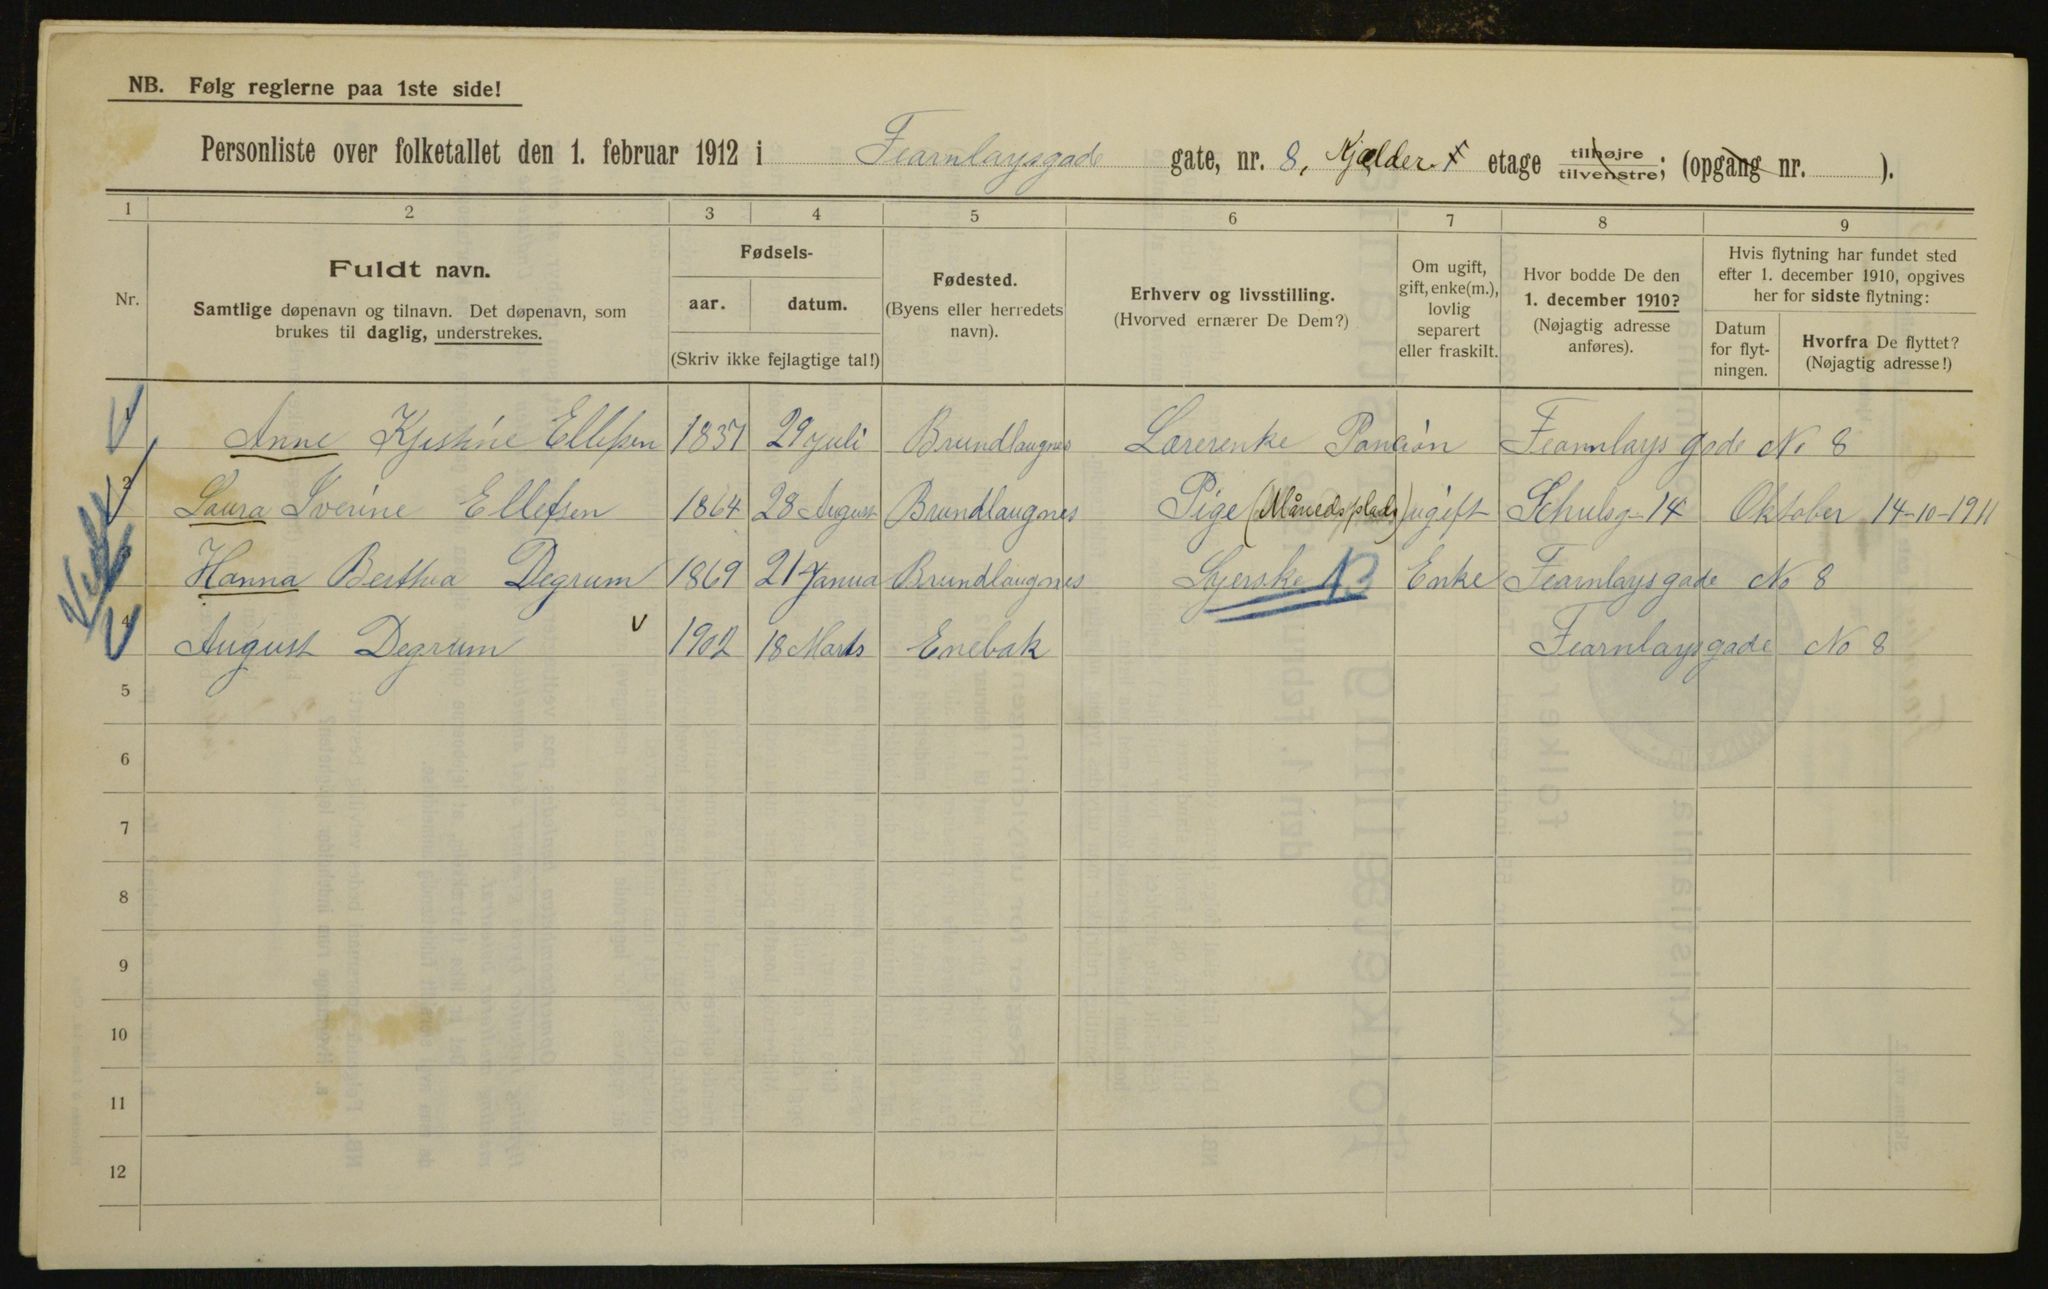 NB. Følg reglerne paa 1ste side!
Personliste over folketallet den 1. februar 1912 i Fearnlaysgade gate, nr. 8, Kjælder etage tilhøjre tilvenstre; (opgang nr. ).
1 2 3 4 5 6 7 8 9
Nr.
Fuldt navn.
Samtlige døpenavn og tilnavn. Det døpenavn, som
brukes til daglig, understrekes.
Fødsels-
aar. datum.
(Skriv ikke fejlagtige tal!)
Fødested.
(Byens eller herredets
navn).
Erhverv og livsstilling.
(Hvorved ernærer De Dem?)
Om ugift,
gift, enke(m.),
lovlig
separert
eller fraskilt.
Hvor bodde De den
1. december 1910?
(Nøjagtig adresse
anføres).
Hvis flytning har fundet sted
efter 1. december 1910, opgives
her for sidste flytning:
Datum
for flyt-
ningen.
Hvorfra De flyttet?
(Nøjagtig adresse!)
1 Anne Kjestine Ellefsen 1837 29 juli Brundlaugnes Lærerenke Pansion Fearnlays gade No 8
2 Laura Iverine Ellefsen 1864 28 August Brundlaugnes Pige (Månedsplads) ugift Schulsg 14 Oktober 14-10-1911
Hanna Berthea Degrum 1869 21 Janua Brundlaugnes Syerske Enke Fearnlaysgade No 8
4 August Degrum v 1902 18 Marts Enebak Fearnlaysgade No 8
5
6
7
8
9
10
11
12